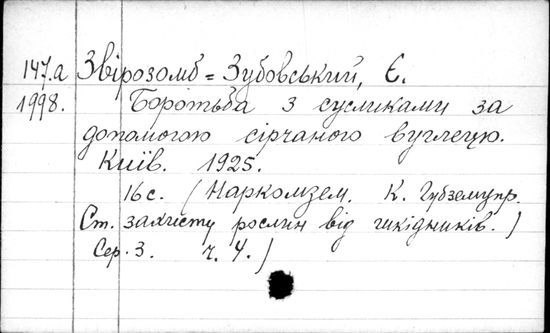 147.а Звірозомб=Зубовський, Є.
1998. Боротьба з сусликами за
допомогою сірчаного вуглецю.
Київ. 1925.
16 с. (Наркомзем. К. Губземупр.
Ст. захисту рослин від шкідників.)
Сер. 3. ч. 4.)